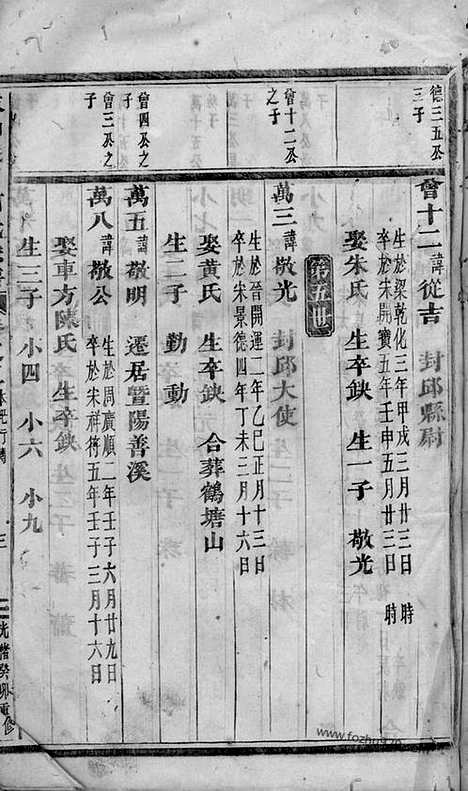 德三五公
三子
曾十二 諱從吉 封邱縣尉
生於梁乾化三年甲戌三月廿三日 時
卒於宋開寶五年壬申五月廿三日 時
娶朱氏 生卒缺 生一子 敬光
第五世
曾十二公
之子
萬三 諱敬光 封邱大使
生於晉開運二年乙巳正月十三日
卒於宋景德四年丁未三月十六日
娶黃氏 生卒缺 合葬鶴塘山
生二子 勤 動
曾四公之
子
萬五 諱敬明 遷居暨陽善溪
曾三公之
子
萬八 諱敬公
生於周廣順二年壬子六月廿九日
卒於宋祥符五年壬子三月十六日
娶車方陳氏 生卒缺
生三子 小四 小六 小九
光緒癸卯重修
www.fozhu920.com